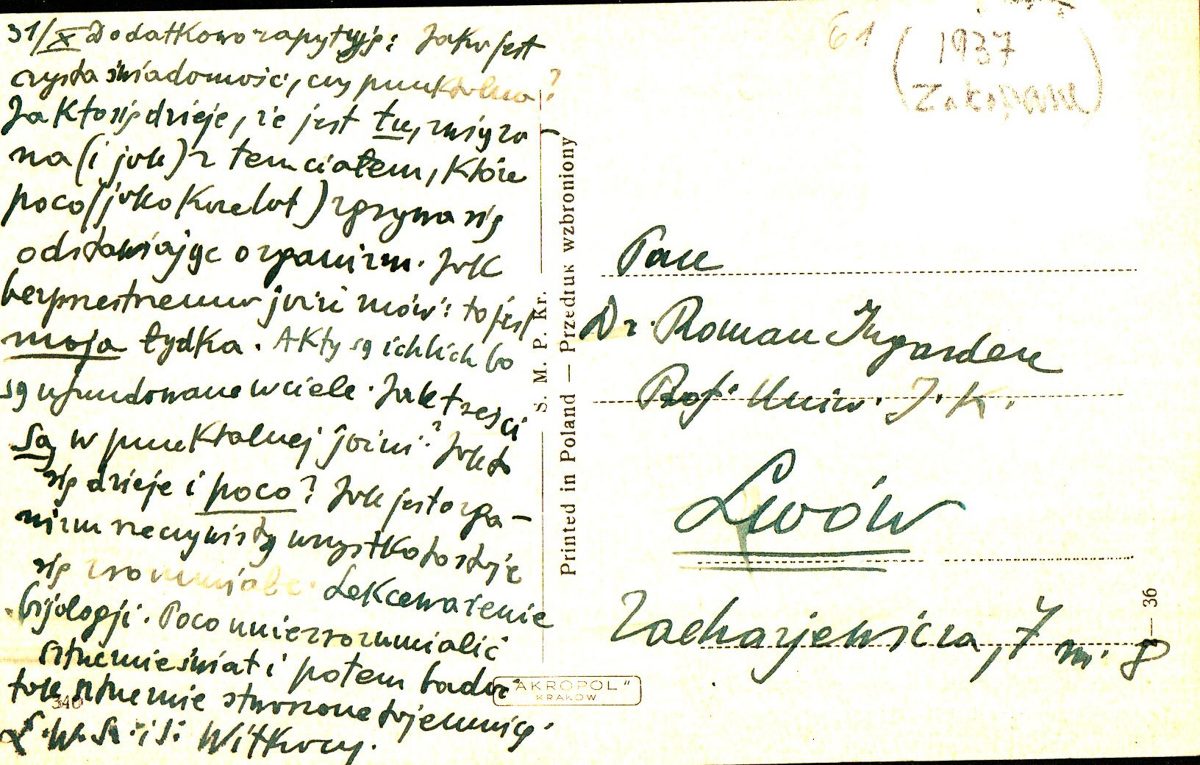 31/X Dodatkowo zapytuję: Jaka jest
czysta świadomość, czy punktolna?
Jak to się dzieje, że jest tu, zwięza-
na (i jak) z tem ciałem, które
poco (jako Korelat) zgrywa się
odstawiając organizm. Jak
bezprzestrzenna jaźń mówi: to jest
moja łydka. Akty są ichlich bo
są ufundowane w ciele. Jak treści
są w punktalnej jaźni? Jak to
się dzieje i poco? Jak jest orga-
nizm rzeczywisty wszystko to staje
się zrozumiałe. Lekceważenie
bijologji. Poco uniezrozumialić
sztucznie świat i potem badać
tak sztucznie stworzone tajemnice.
Ł. W. S. i S. Witkacy.
61
(1937
Zakopane)
S. M. P. Kr.
Printed in Poland — Przedruk wzbroniony
Pan
Dr. Roman Ingarden
Prof. Uniw. J. K.
Lwów
Zacharjewicza, 7 m. 8
36
340
"AKROPOL"
KRAKÓW